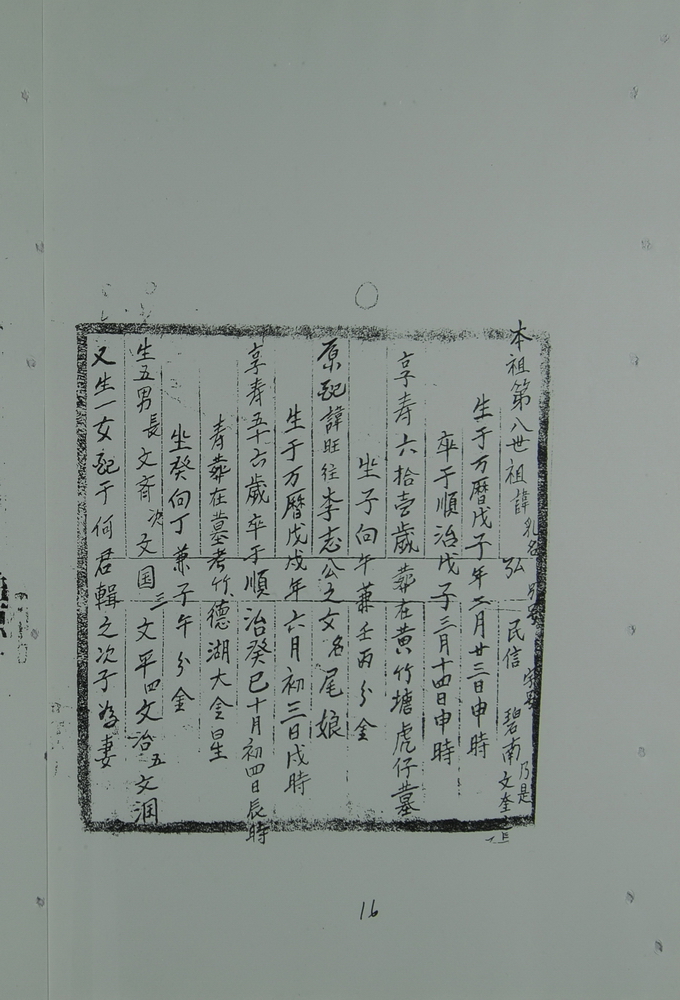 本祖第八世祖諱乳名弘別號民信字號碧南乃是文奎之
生于万曆戊子年二月廿三日申時
卒于順治戊子三月十四日申時
享寿六拾壹歲葬在黄竹塘虎仔墓
坐子向午兼壬丙分金
原配諱旺往李志公之女名尾娘
生于万曆戊戌年六月初三日戌時
享寿五十六歲卒于順治癸巳十月初四日辰時
寿葬在墓考竹德湖大金星
坐癸向丁兼子午分金
生五男長文斉次文国三文平四文治五文润
又生一女配于何君輯之次子為妻
16